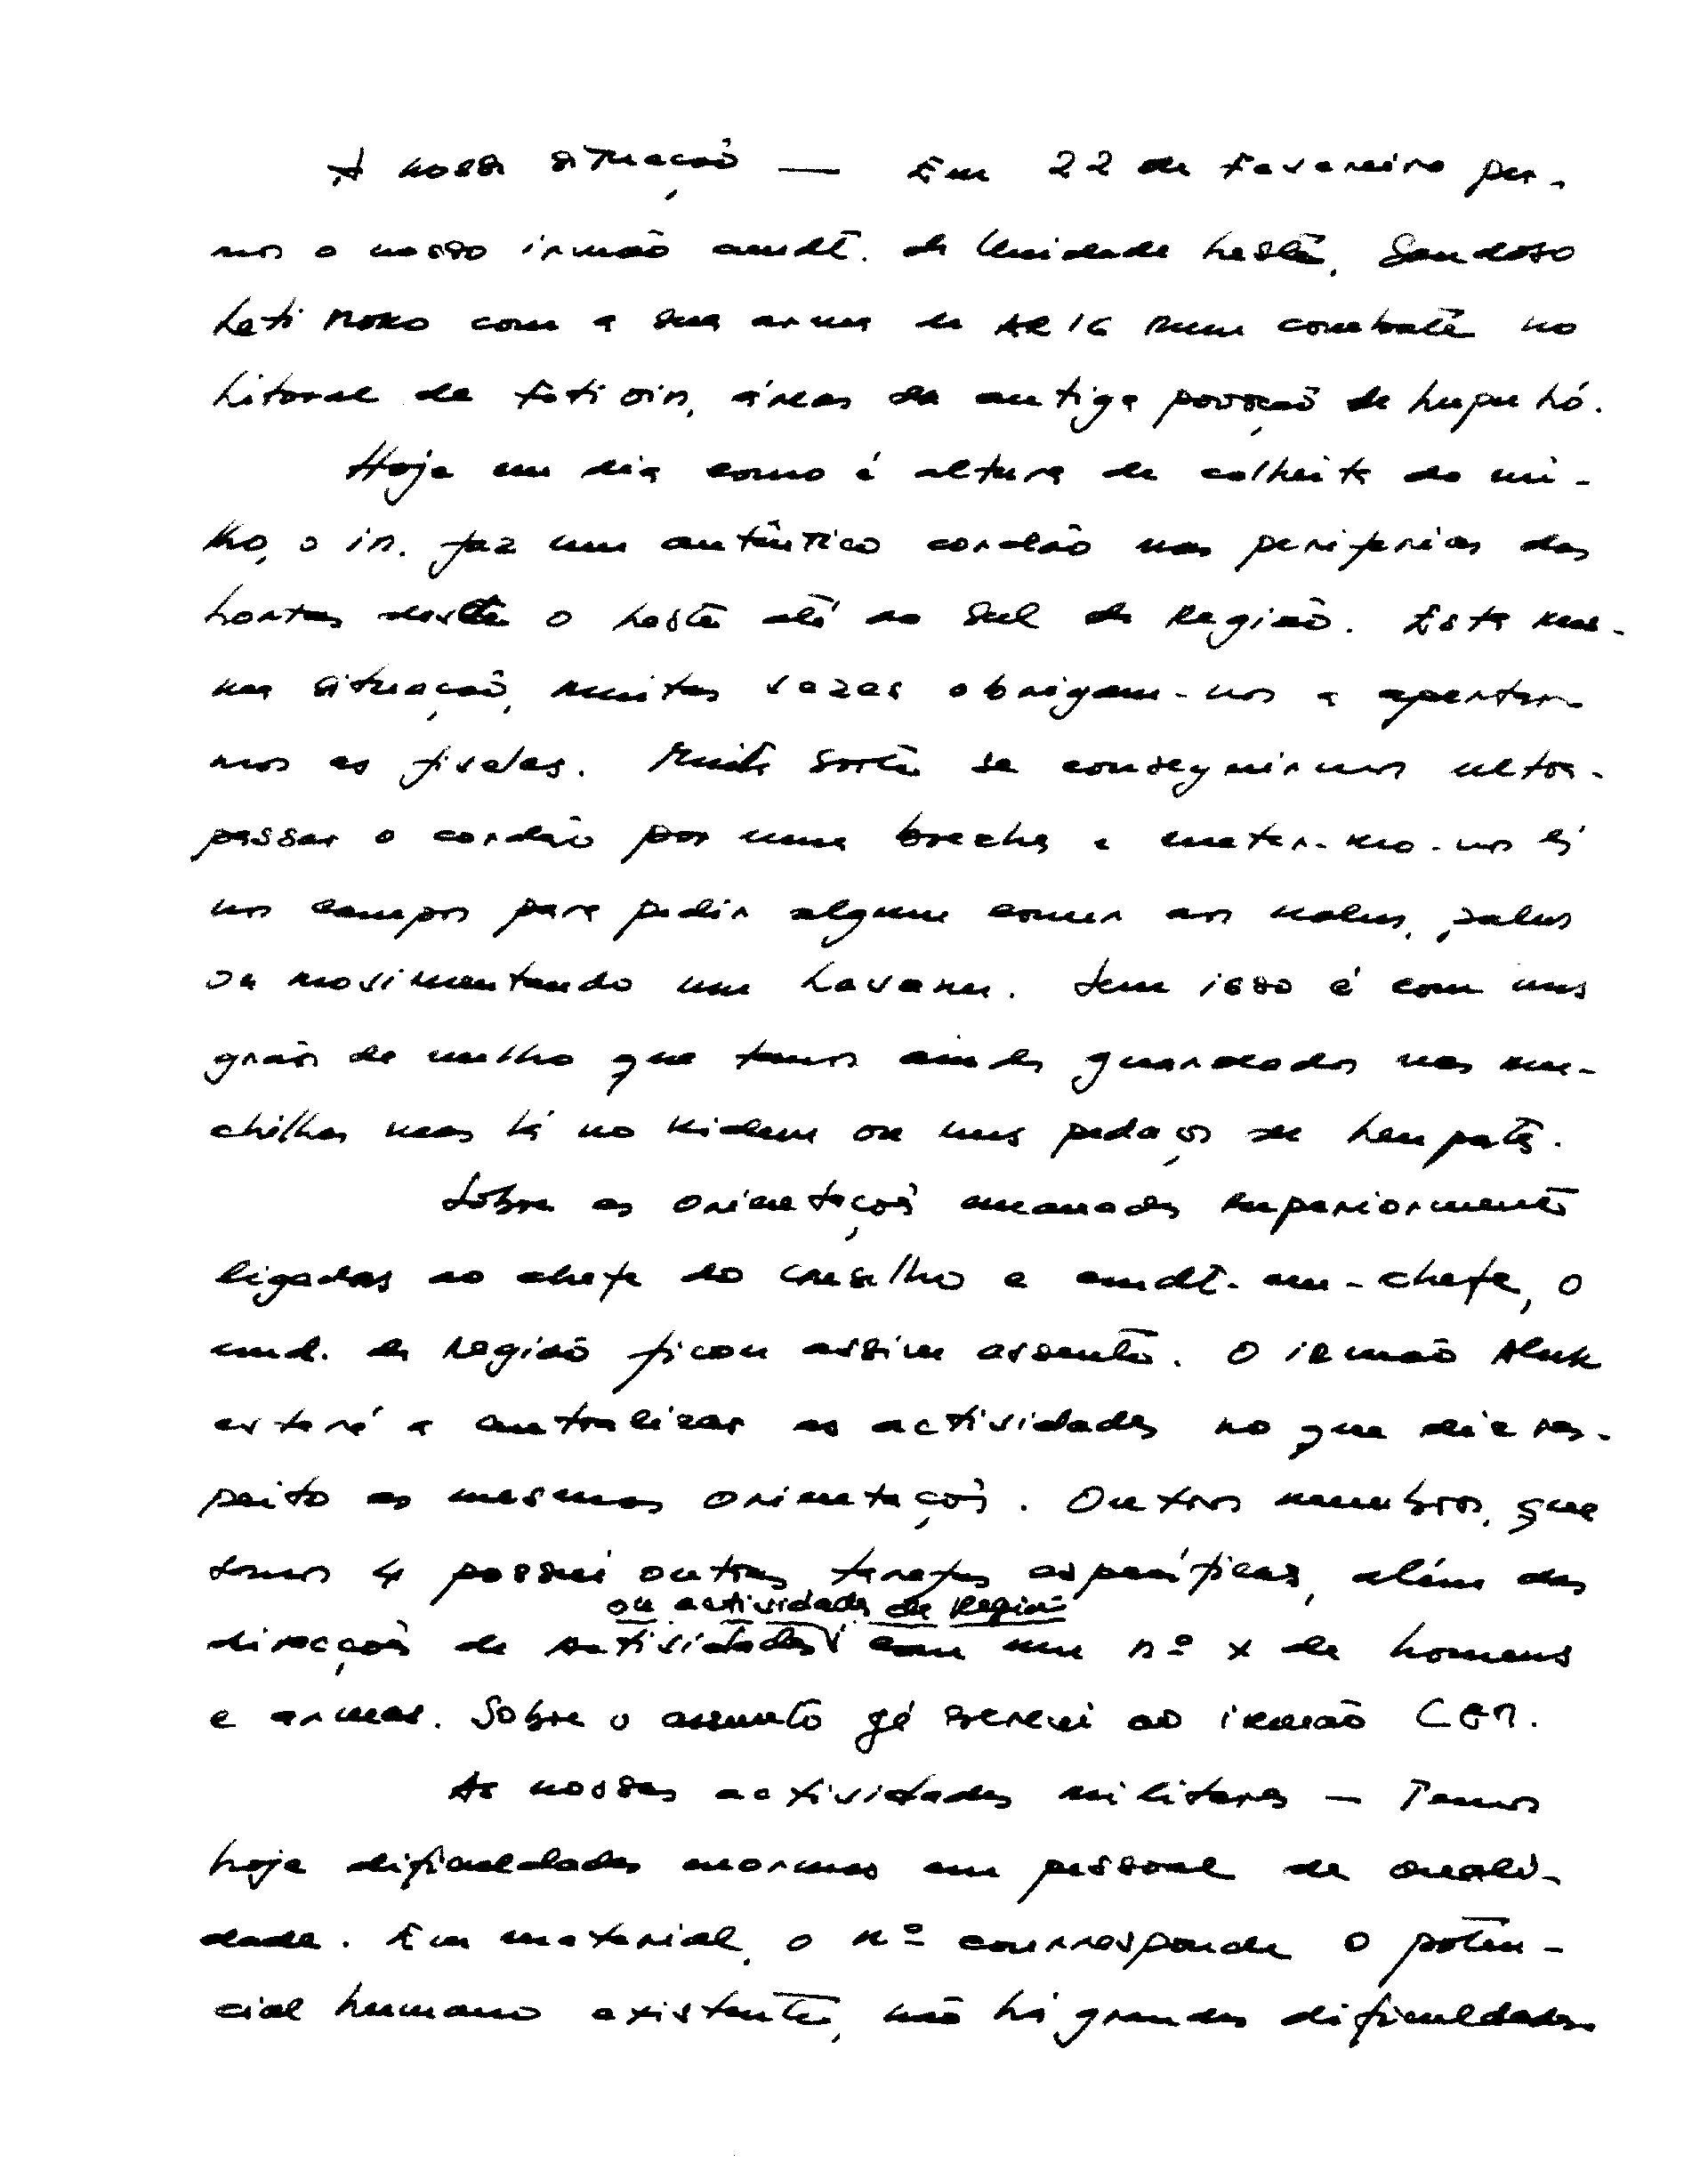 A nossa situação — Em 22 de Fevereiro per-
mos o nosso irmão cmdt. da Unidade Leste, Saudoso
Leti Moko com a sua arma de AR16 num combate no
Litoral de Foti Oin, áreas da antiga povoação de Lupuló.
Hoje em dia como é altura de colheita do mi-
lho, o in. faz um autêntico cordão nas periferias das
hortas desde o Leste até ao Sul da Região. Esta mes-
ma situação, muitas vezes obrigam-nos a apertar-
mos as fivelas. Muita sorte se conseguirmos ultra-
passar o cordão por uma brecha e meter-mo-nos lá
nos campos para pedir algum comer aos
ou movimentando um Lavarm. Sem isso é com uns
grãos de milho que temos ainda guardados nas mu-
chilas mas lá no Kidem ou uns pedaços de
Sobre as orientações emanadas superiormente
ligadas ao chefe do Conselho e cmdt-em-chefe, o
cmd. da Região ficou assim assente. O irmão Aluk
estará a centralizar as actividades no que diz res-
peito as mesmas orientações. Outros membros, que
somos 4 possui outras tarefas específicas, além das
ou actividades de Região
direcções de actividades com um nº x de homens
e armas. Sobre o assunto já escrevi ao irmão CEM.
As nossas actividades militares — Temos
hoje dificuldades enormes em pessoal de quali-
dade. Em material, o nº corresponde o poten-
cial humano existente, não há grandes dificuldades